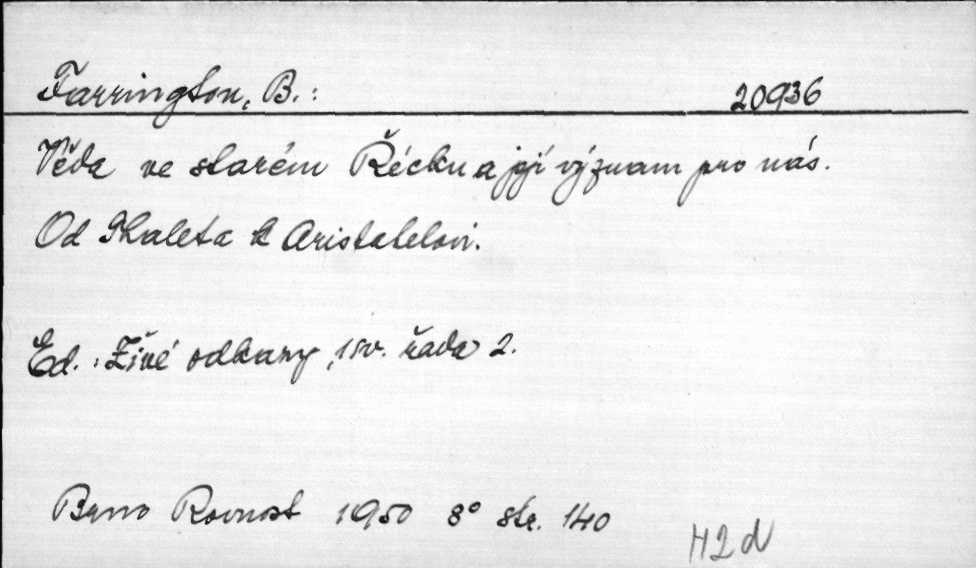 Farrington, B.: 20936
Věda ve starém Řécku a její význam pro nás.
Od Thaleta k Aristotelovi.
Ed.: Živé odkazy, 1 sv. řada 2.
Brno Rovnost 1950 8° str. 140
H2d